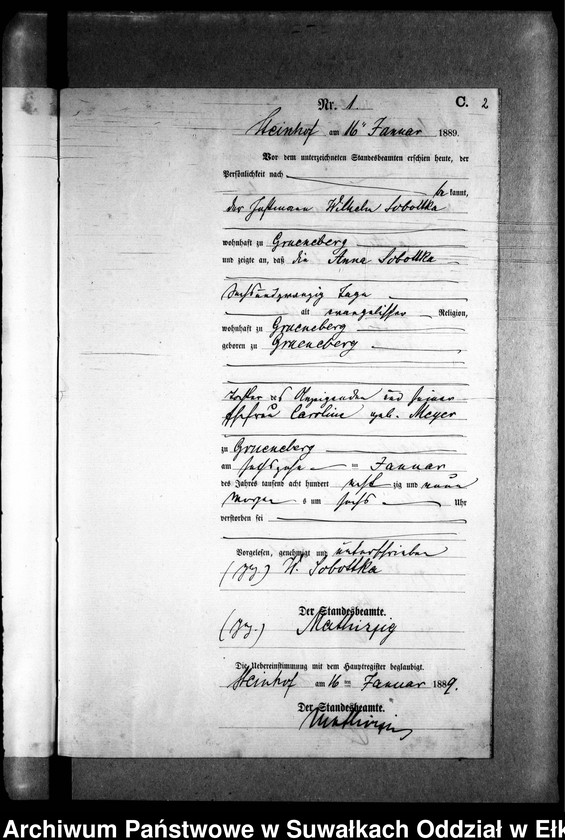 Nr. 1.
C. 2
Steinhof am 16ⁿ Januar 1889.
Vor dem unterzeichneten Standesbeamten erschien heute, der
Persönlichkeit nach
be kannt,
der Instmann Wilhelm Sobottka
wohnhaft zu Grueneberg
und zeigte an, daß die Anna Sobottka
sechsundzwanzig Tage
alt evangelischer Religion,
wohnhaft zu Grueneberg
geboren zu Grueneberg
Tochter des Anzeigenden und seiner
Ehefrau Caroline geb. Meyer
zu Grueneberg
am sechszehn ten Januar
des Jahres tausend acht hundert acht zig und neun
Morgens um sechs Uhr
verstorben sei
Vorgelesen, genehmigt und unterschrieben
(gz.) W. Sobottka
Der Standesbeamte.
(gz.)
Die Uebereinstimmung mit dem Hauptregister beglaubigt.
Steinhof am 16 ten Januar 1889.
Der Standesbeamte.
Archiwum Państwowe w Suwałkach Oddział w Ełk